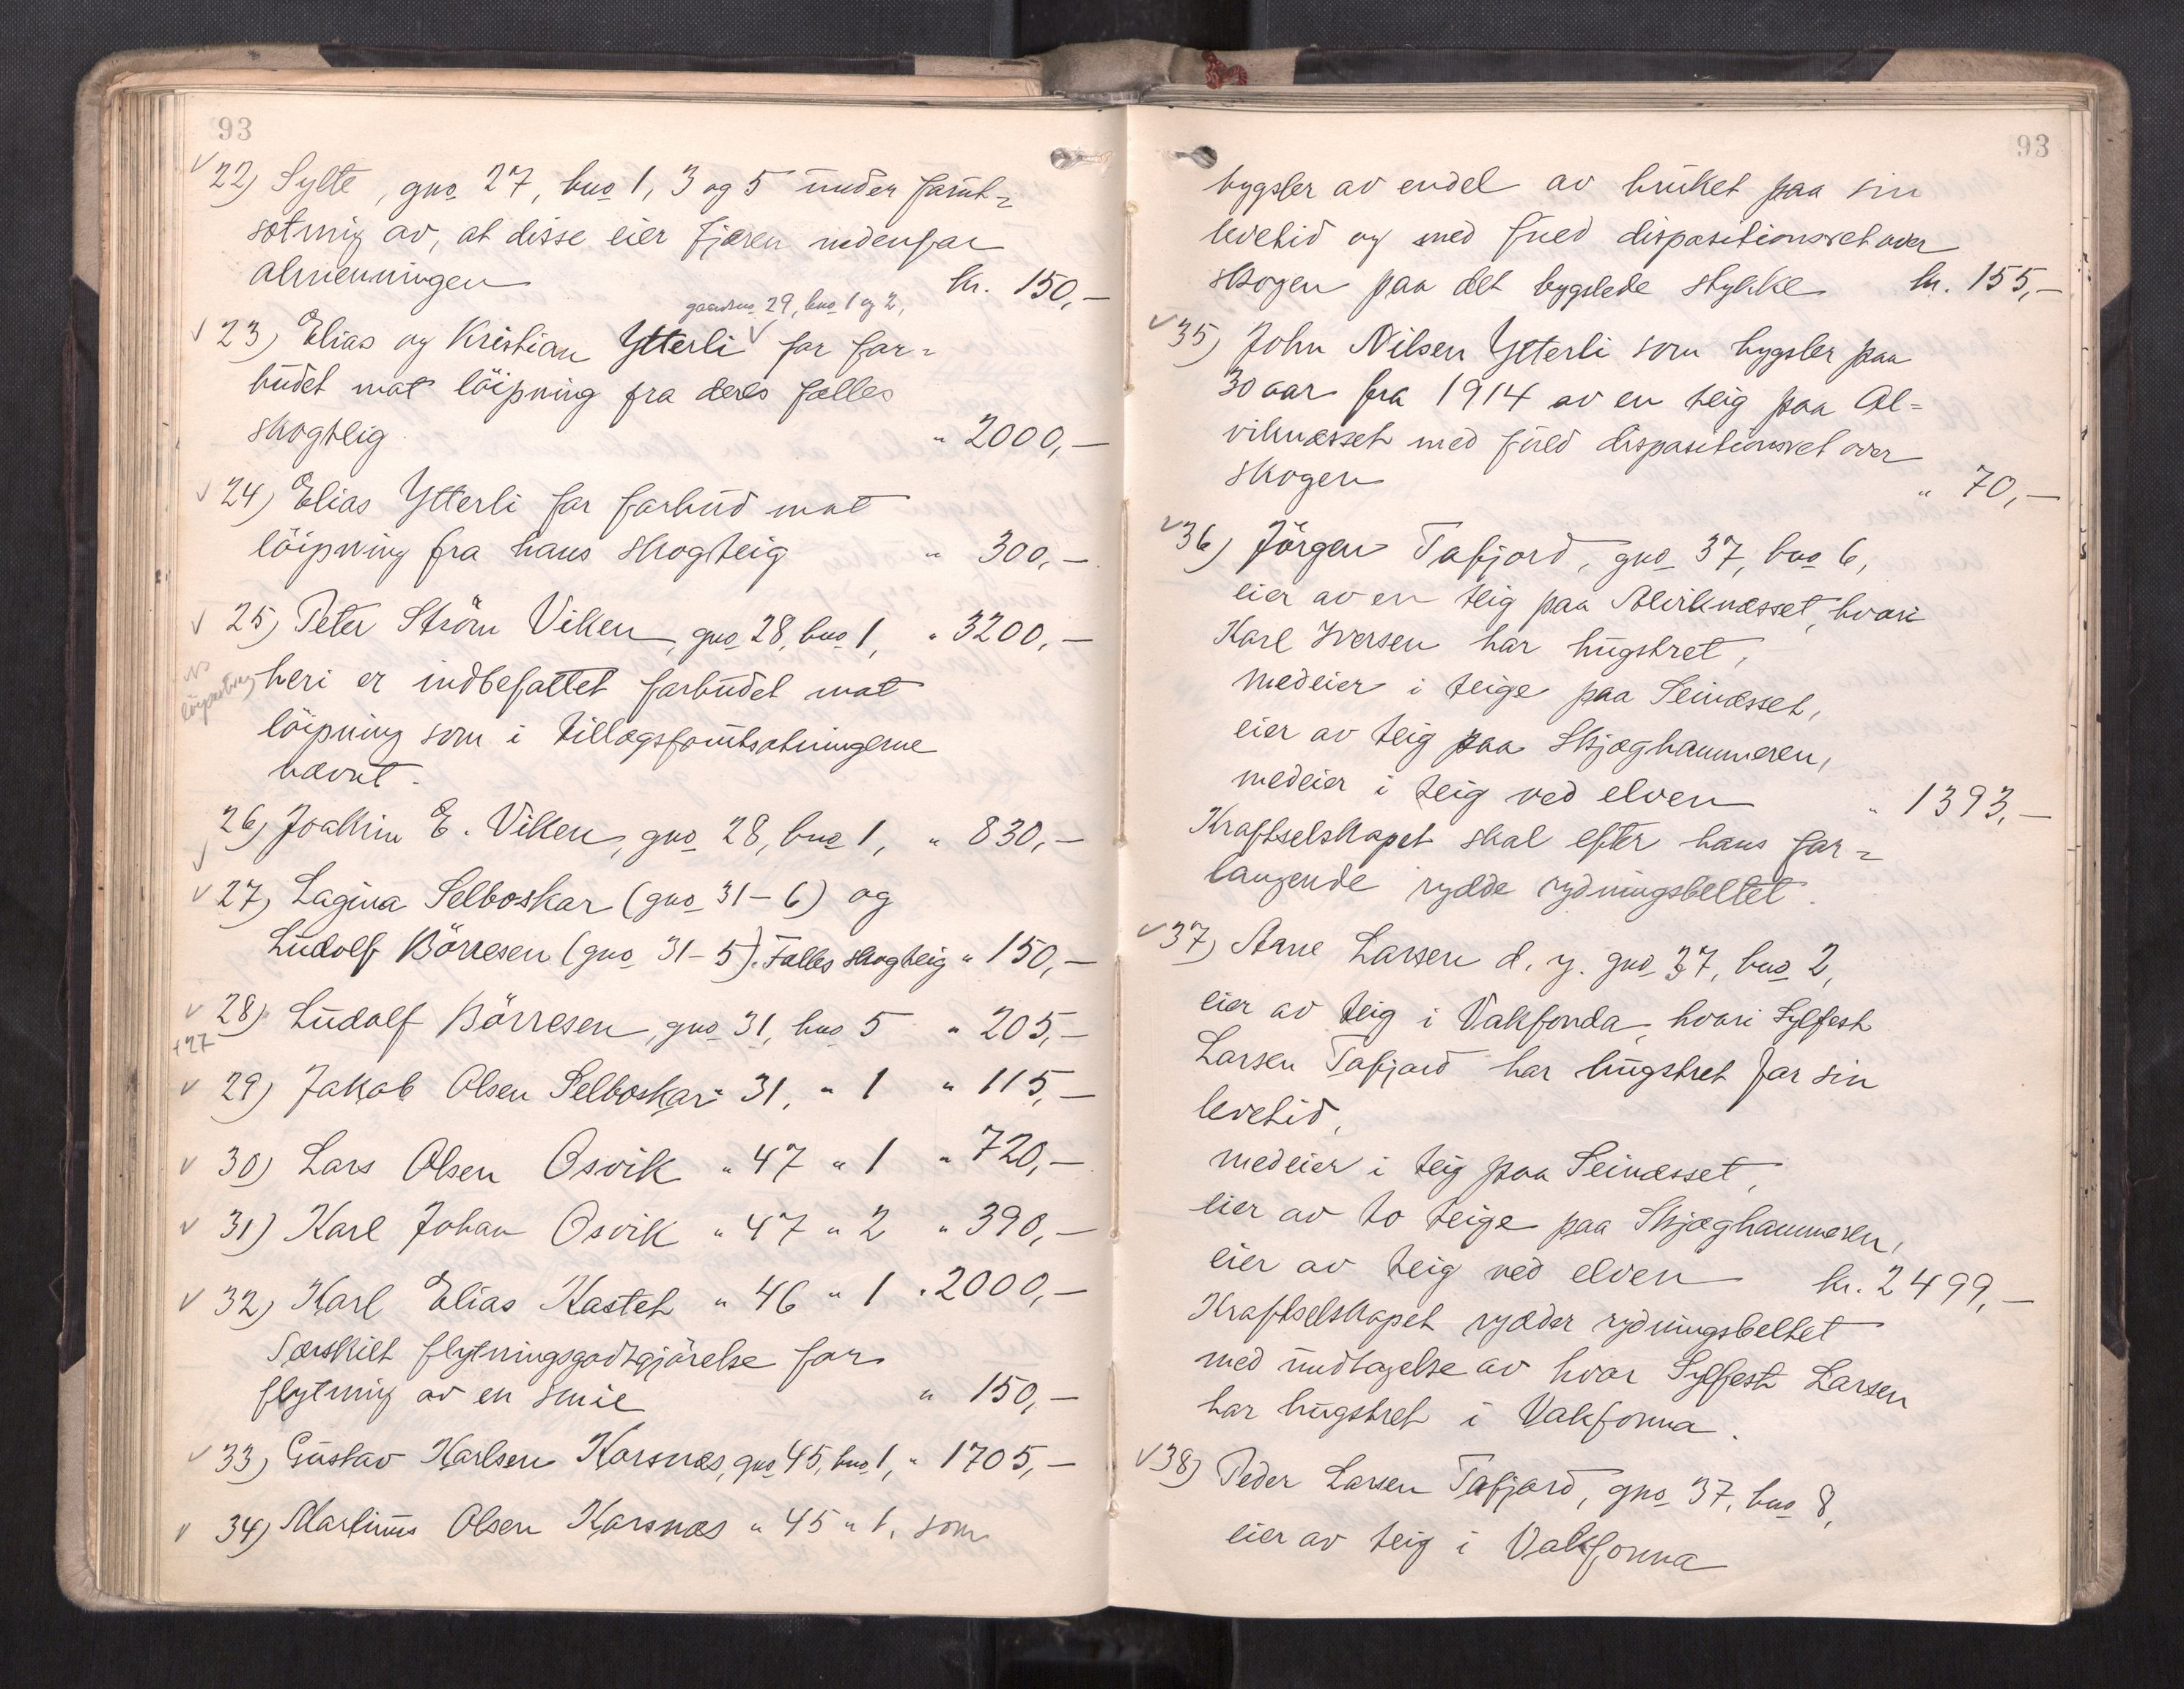 93
22) Sylte, gno 27, bno 1, 3 og 5 under forut-
sætning av, at disse eier fjæren nedenfor
almenningen kr. 150,-
gaardsno 29, bno 1 og 2,
23) Elias og Kristian Ytterli for for-
budet mot löipning fra deres fælles
skogteig " 2000,-
24) Elias Ytterli for forbud mot
löipning fra hans skogteig " 300,-
25) Peter Ström Viken, gno 28, bno 1, " 3200,-
heri er indbefattet forbudet mot
löipning som i tillægsforutsætningerne
nævnt.
26) Joakim E. Viken, gno 28, bno 1, " 830,-
27) Lagina Selboskar (gno 31-6) og
Ludolf Börresen (gno 31-5). Fælles skogteig " 150,-
28) Ludolf Börresen, gno 31, bno 5 " 205,-
+27
29) Jakob Olsen Selboskar " 31, " 1 " 115,-
30) Lars Olsen Osvik " 47 " 1 " 720,-
31) Karl Johan Osvik " 47 " 2 " 390,-
32) Karl Elias Kastet " 46 " 1 " 2000,-
Særskilt flytningsgodtgjörelse for
flytning av en smie " 150,-
33) Gustav Karlsen Korsnes, gno 45, bno 1, " 1705,-
34) Martinus Olsen Korsnæs " 45 " 1, som
93
bygsler av endel av bruket paa sin
levetid og med fuld dispositionsret over
skogen paa det bygslede stykke kr. 155,-
35) John Nilsen Ytterli som bygsler paa
30 aar fra 1914 av en teig paa Al-
viknæsset med fuld dispositionsret over
skogen " 70,-
36) Jörgen Tafjord, gno 37, bno 6,
eier av en teig paa Alviknæsset, hvori
Karl Iversen har hugstret,
medeier i teige paa Seinæsset,
eier av teig paa Skjæghammeren,
medeier i teig ved elven " 1393,-
Kraftselskapet skal efter hans for-
langende rydde rydningsbeltet.
37) Arne Larsen d. y. gno 37, bno 2,
eier av teig i Vakfonda, hvori Sylfest
Larsen Tafjord har hugstret for sin
levetid,
medeier i teig paa Seinæsset,
eier av to teige paa Skjæghammeren,
eier av teig ved elven kr. 2499,-
Kraftselskapet rydder rydningsbeltet
med undtagelse av hvor Sylfest Larsen
har hugstret i Vakfonna.
38) Peder Larsen Tafjord, gno 37, bno 8,
eier av teig i Vakfonna